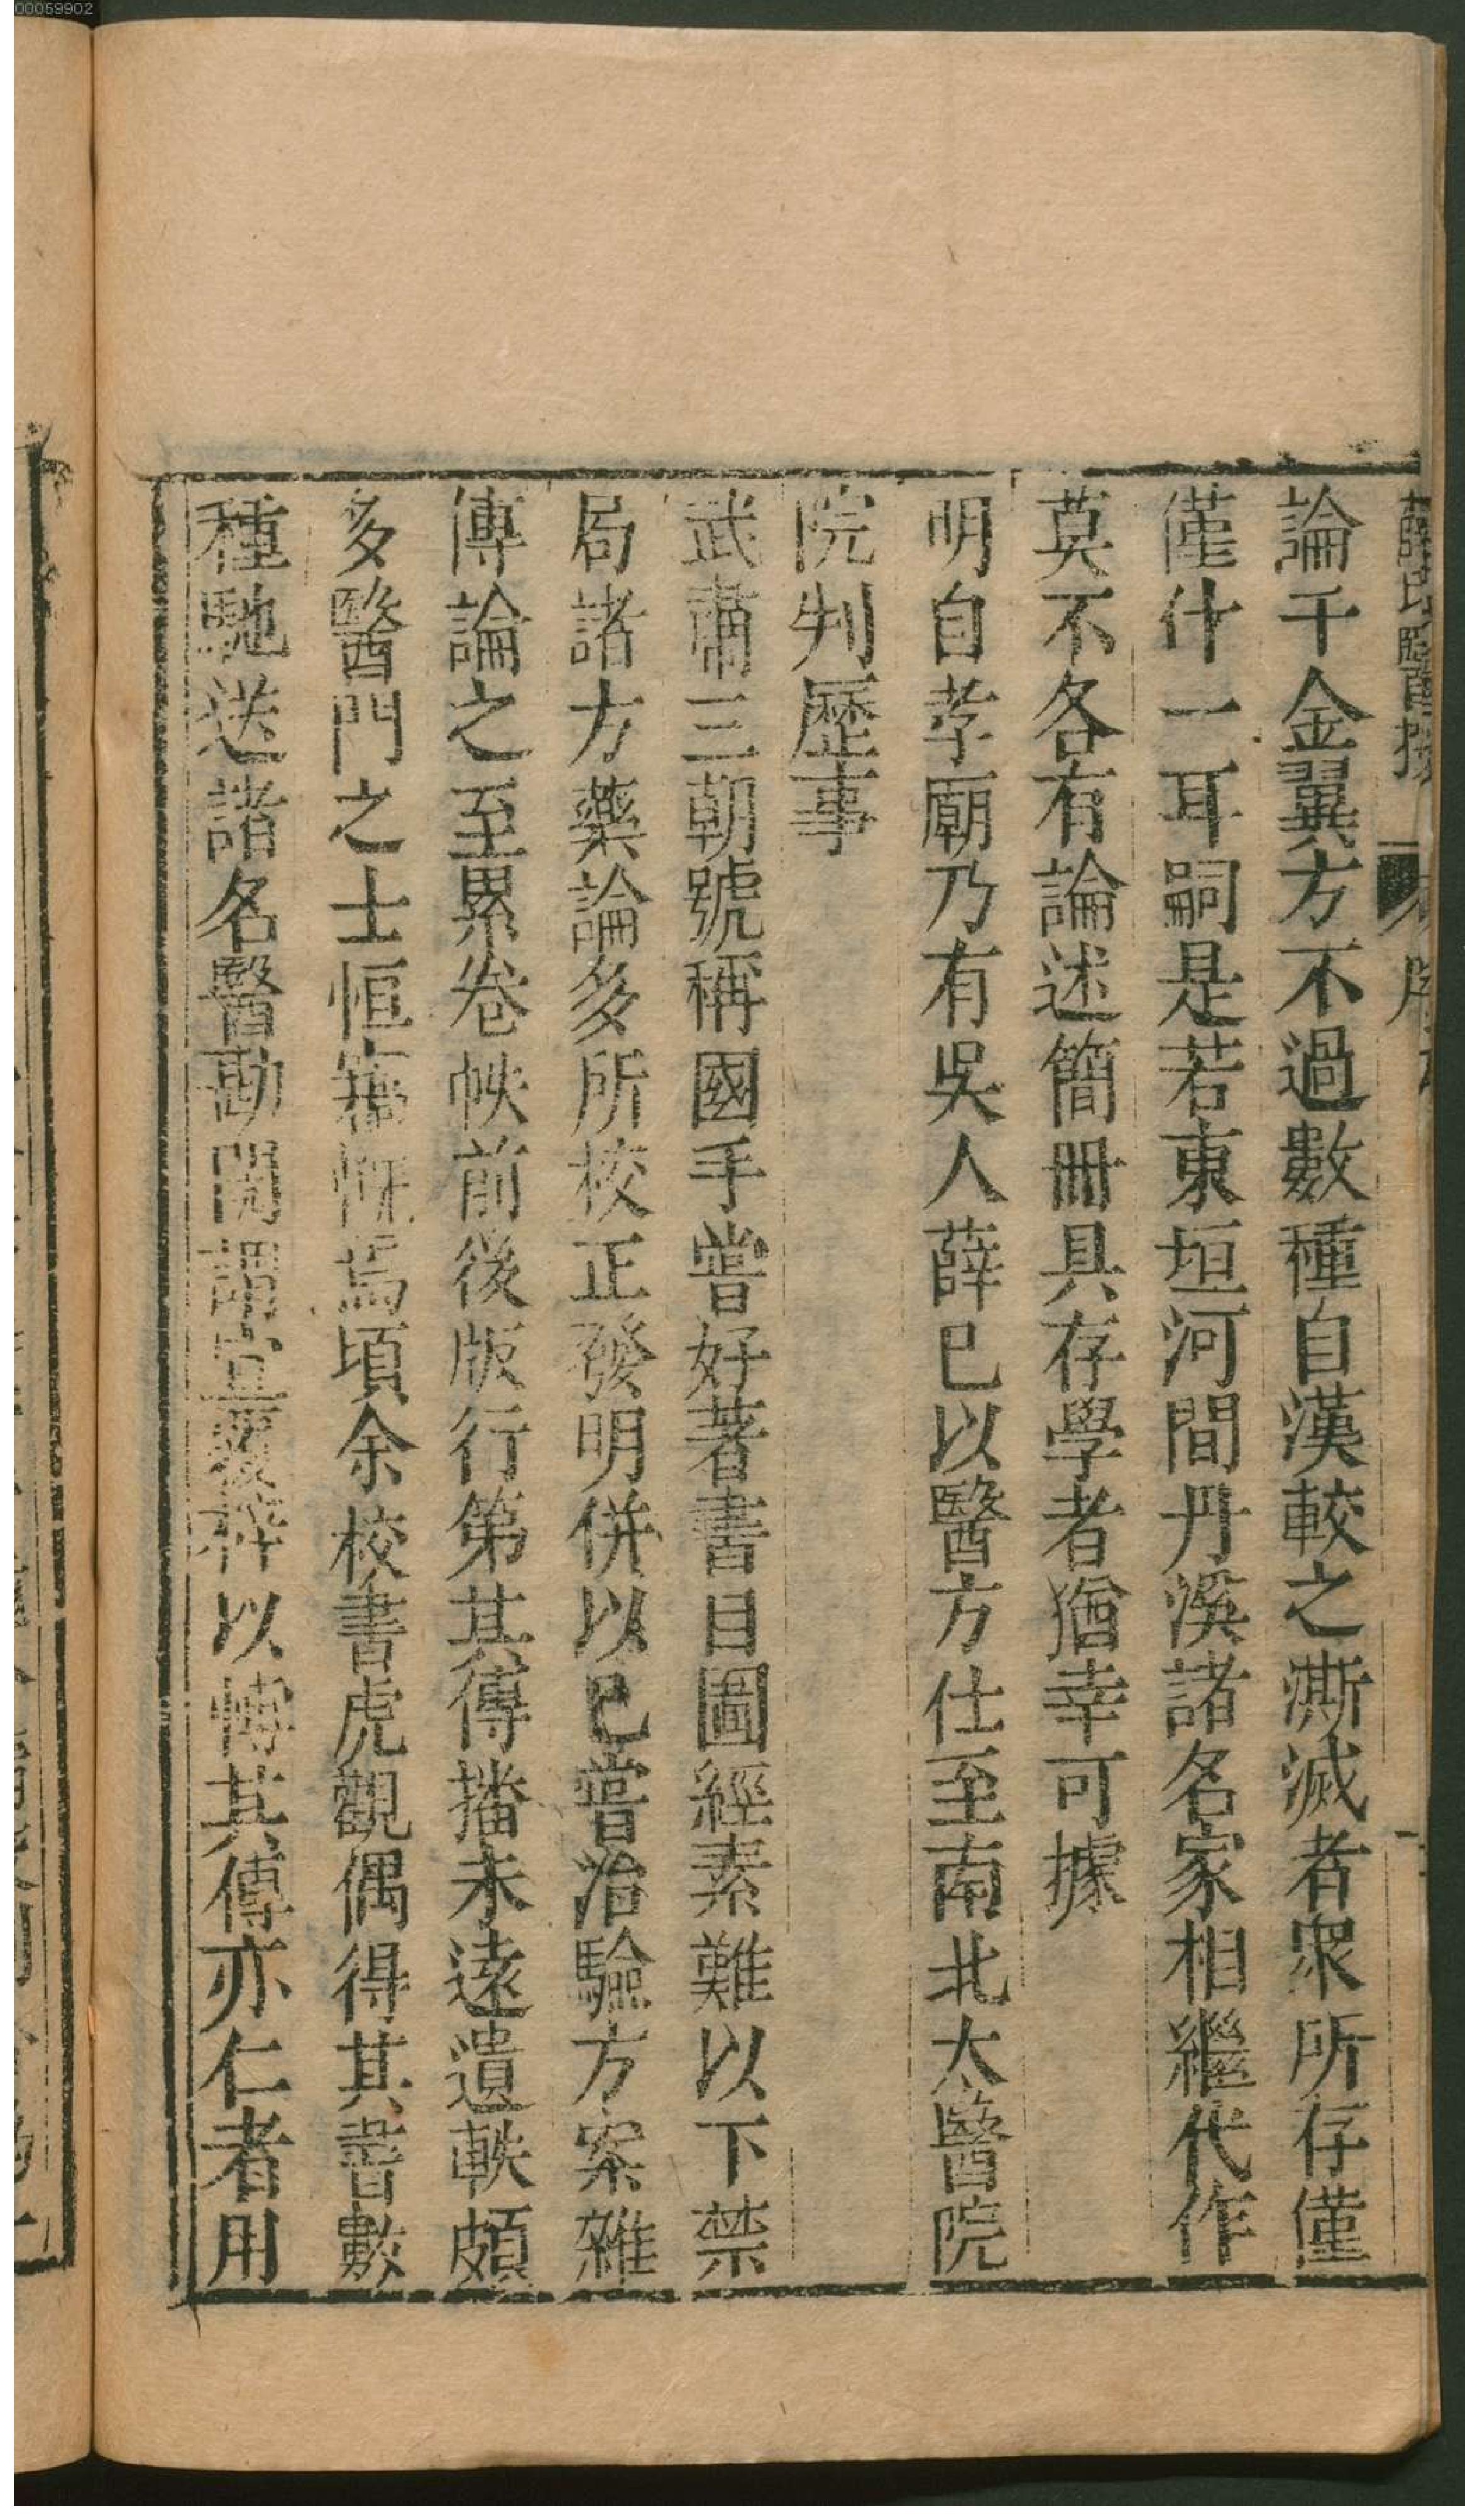 00059902
論千金翼方不過數種自漢較之澌滅者衆所存僅
僅什一耳嗣是若東垣河間丹溪諸名家相繼代作
莫不各有論述簡冊具存學者猶幸可據
明自孝廟乃有吳人薛已以醫方仕至南北太醫院
院判歷事
武肅三朝號稱國手嘗好著書目圖經素難以下禁
局諸方藥論多所校正發明併以已嘗治驗方案雜
傳論之至累卷帙前後版行第其傳播未遠遺軼頗
多醫門之士恒寤慨焉頃余校書虎觀偶得其書數
種馳送諸名醫勘閱謂宜梓以博其傳亦仁者用